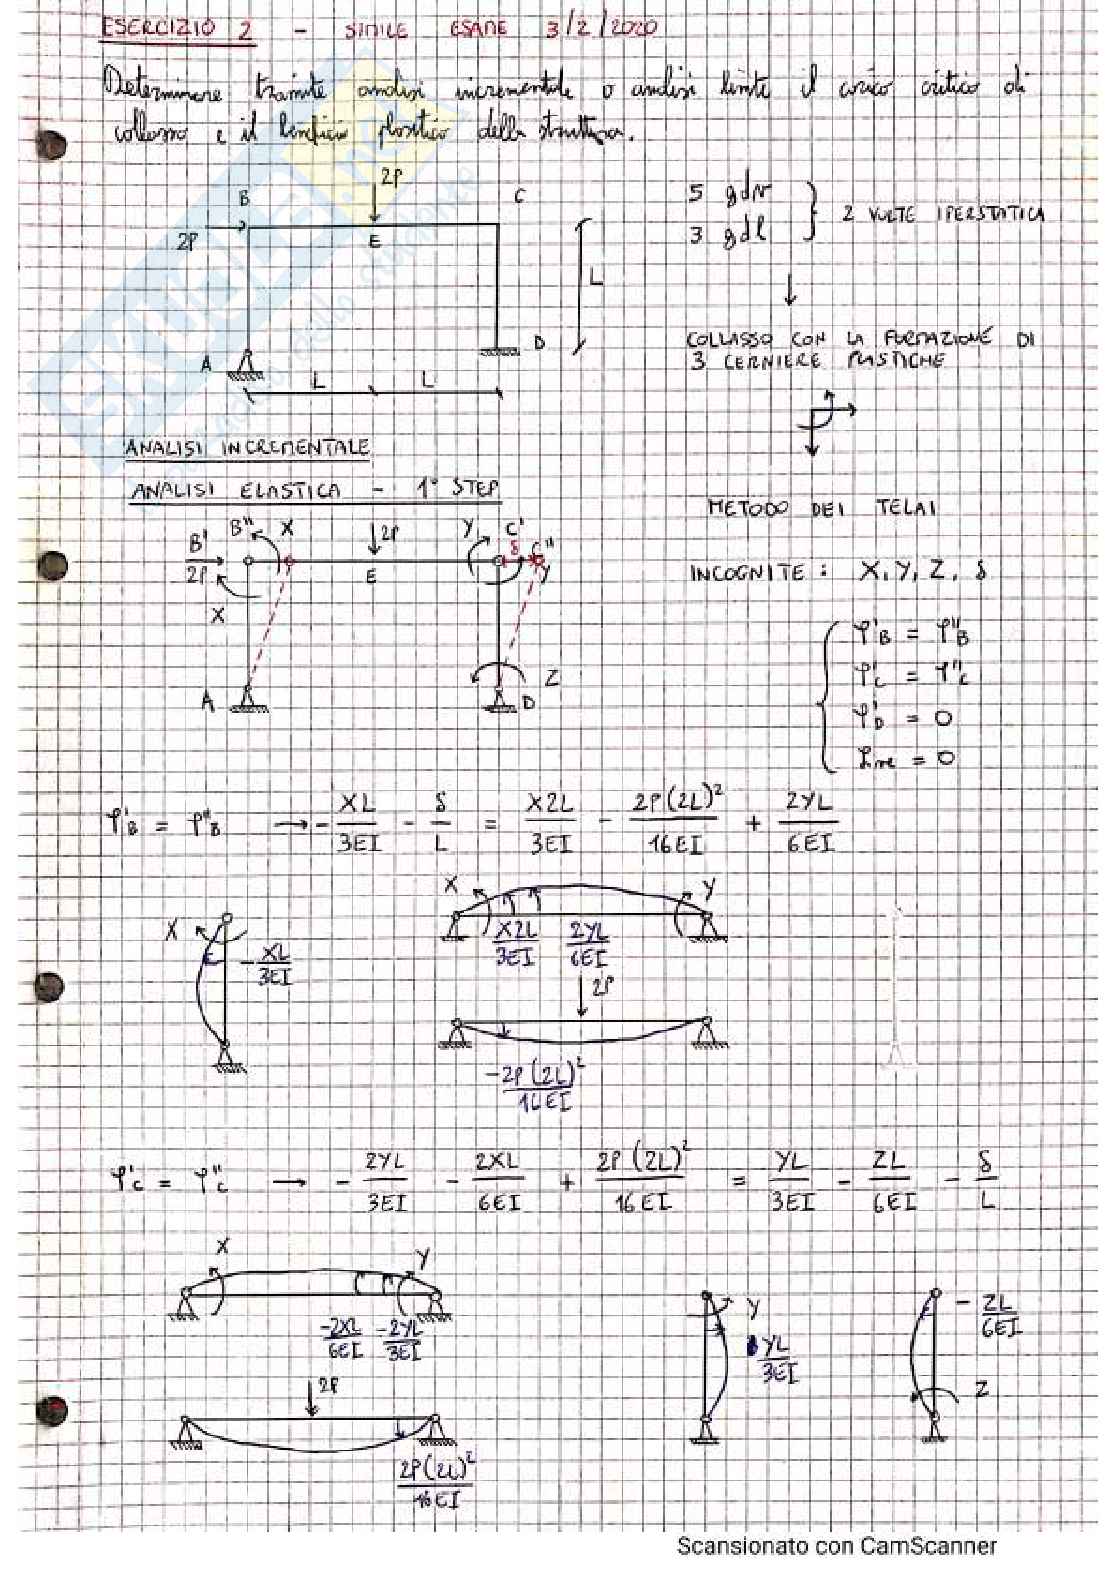 ESERCIZIO 2 - SIMILE ESAME 3/2/2020
Determinare tramite analisi incrementale o analisi limite il carico critico di
collasso e il beneficio plastico della struttura.
B 2P C
2P E
A D
L L L
5 gdv
3 gdl } 2 VOLTE IPERSTATICA
COLLASSO CON LA FORMAZIONE DI
3 CERNIERE PLASTICHE
ANALISI INCREMENTALE
ANALISI ELASTICA - 1° STEP
METODO DEI TELAI
INCOGNITE: X, Y, Z, δ
B' B" X 2P Y C' δ C"
2P E Y
X
A D Z
φ'B = φ"B
φ'C = φ"C
φ'D = 0
Lve = 0
φ'B = φ"B → - XL/3EI - δ/L = X2L/3EI - 2P(2L)²/16EI + 2YL/6EI
X Y
X2L/3EI 2YL/6EI
X - XL/3EI
2P
-2P(2L)²/16EI
φ'C = φ"C → - 2YL/3EI - 2XL/6EI + 2P(2L)²/16EI = YL/3EI - ZL/6EI - δ/L
X Y
-2XL/6EI -2YL/3EI
Y YL/3EI
- ZL/6EI
Z
2P
2P(2L)²/16EI
Scansionato con CamScanner